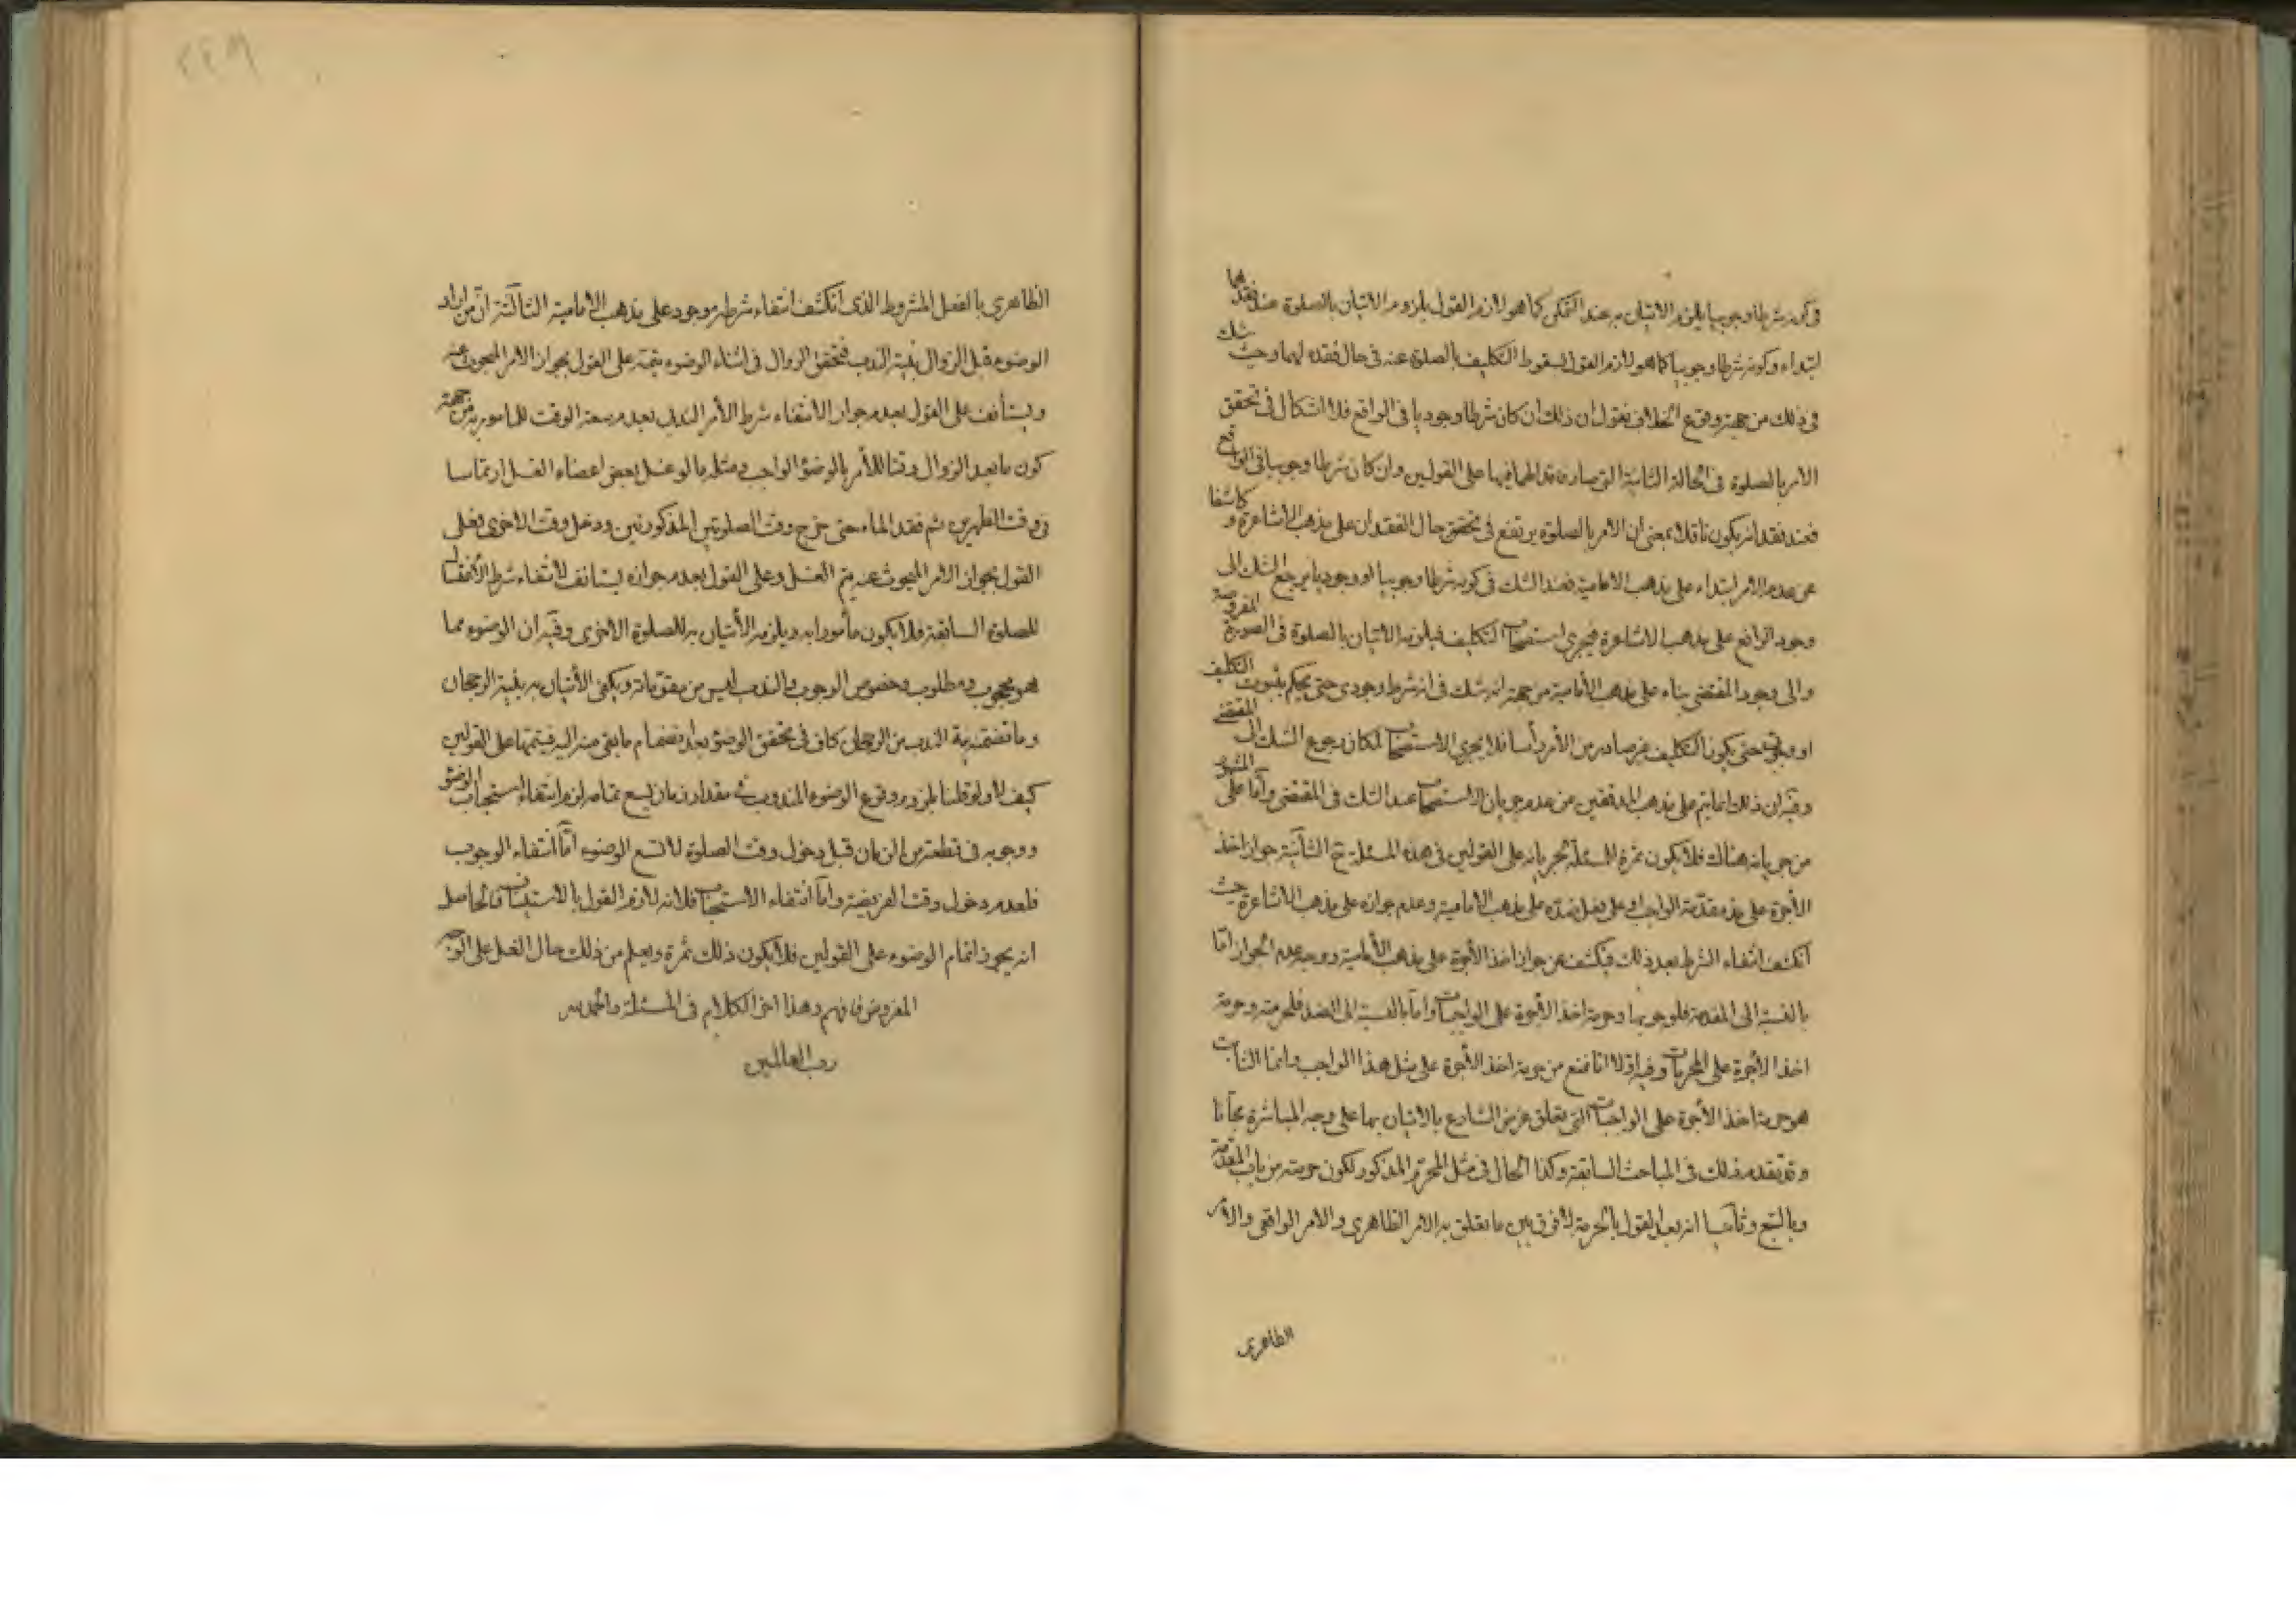 في كونه شرطا وجوبيا يلزم الاتيان به عند التمكن كما هو لازم القول بلزوم الاتيان بالصلوة عند فقدهما
ابتداء وكونه شرطا وجوبيا كما هو لازم القول بسقوط التكليف بالصلوة عنه في حال فقده لهما وحيث شك
في ذلك من جهة وقوع الخلاف فنقول ان ذلك ان كان شرطا وجوديا في الواقع فلا اشكال في تحقق
الامر بالصلوة في الحالة الثانية التي صار فاقدا لهما فيها على القولين وان كان شرطا وجوبيا في الواقع
فعند فقدانه يكون ناقلا بمعنى ان الامر بالصلوة يرتفع في تحقق حال الفقدان على مذهب الاشاعرة و كاشفا
عن عدم الامر ابتداء على مذهب الامامية فعند الشك في كونه شرطا وجوبيا او وجوديا يرجع الشك الى
وجود الرافع على مذهب الاشاعرة فيجري استصحاب التكليف فيلزمه الاتيان بالصلوة في الصورة المفروضة
والى وجود المقتضي بناء على مذهب الأمامية من جهة انه شك في انه شرط وجودي حتى يحكم بثبوت التكليف
او وجوبي حتى يكون التكليف غير صادر من الأمر رأسا فلا يجري الاستصحاب لمكان رجوع الشك الى المقتضي
وفيه ان ذلك انما يتم على مذهب المدققين من عدم جريان الاستصحاب عند الشك في المقتضي وأما على المشهور
من جريانه هناك فلا يكون ثمرة المسئلة لجريانه على القولين في هذه المسئلة ح الثانية جواز اخذ
الأجرة على مقدمة الواجب او على فعل ضده على مذهب الامامية وعدم جوازه على مذهب الاشاعرة حيث
انكشف انتفاء الشرط بعد ذلك فيكشف عن جواز اخذ الأجرة على مذهب الأمامية ووجه عدم الجواز امّا
بالنسبة الى المقدمة فلوجوبها وحرمة اخذ الاجرة على الواجبات وامّا بالنسبة الى الضد فلحرمته وحرمة
اخذ الأجرة على المحرمات وفيه اولا انا نمنع من حرمة اخذ الأجرة على مثل هذا الواجب وانما الثابت
هو حرمة اخذ الأجرة على الواجبات التي تعلق غرض الشارع بالاتيان بها على وجه المباشرة مجّانا
وقد تقدم ذلك في المباحث السابقة وكذا الحال في مثل المحرّم المذكور لكون حرمته من باب المقدّمة
وبالتبع وثانيا انه بعد القول بالحرمة لا فرق بين ما تعلق به الامر الظاهري والامر الواقعي والامر
الظاهري
الظاهري بالفعل المشروط الذي انكشف انتفاء شرطه موجود على مذهب الأمامية الثالثة انّ من اراد
الوضوء قبل الزوال بنيّة الندب فتحقق الزوال في اثناء الوضوء يتمّه على القول بجواز الامر المبحوث عنه
ويستأنف على القول بعدم جوازه لانتفاء شرط الأمر الندبي بعدم سعة الوقت للمامور به من جهة
كون ما بعد الزوال وقتا للأمر بالوضوء الواجب ومثله ما لو غسل بعض اعضاء الغسل ارتماسا
في وقت الظهرين ثم فقد الماء حتى خرج وقت الصلوتين المذكورتين ودخل وقت الاخرى فعلى
القول بجواز الامر المبحوث عنه يتم الغسل وعلى القول بعدم جوازه يستانف لانتفاء شرط الأمر
للصلوة السابقة فلا يكون مأمورا به ويلزمه الأتيان به للصلوة الاخرى وفيه ان الوضوء مما
هو محبوب ومطلوب وخصوص الوجوب والندب ليس من مقوّماته ويكفي الأتيان به بنية الرجحان
وما تضمّنه نية الندب من الرجحان كاف في تحقق الوضوء بعد انضمام ما بقي منه اليه فيتمها على القولين
كيف لا ولو قلنا بلزوم وقوع الوضوء المندوب في مقدار زمان يسع تمامه لزم انتفاء استحباب الوضوء
ووجوبه في قطعة من الزمان قبل دخول وقت الصلوة لا تسع الوضوء امّا انتفاء الوجوب
فلعدم دخول وقت الفريضة وامّا انتفاء الاستحباب فلانه لازم القول بالاستيناف فالحاصل
انه يجوز اتمام الوضوء على القولين فلا يكون ذلك ثمرة ويعلم من ذلك حال الغسل على الوجه
المفروض فافهم وهذا اخر الكلام في المسئلة والحمد لله
رب العالمين